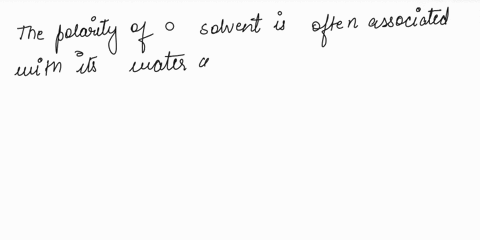 The polarity of o solvent is often associated
with its water a